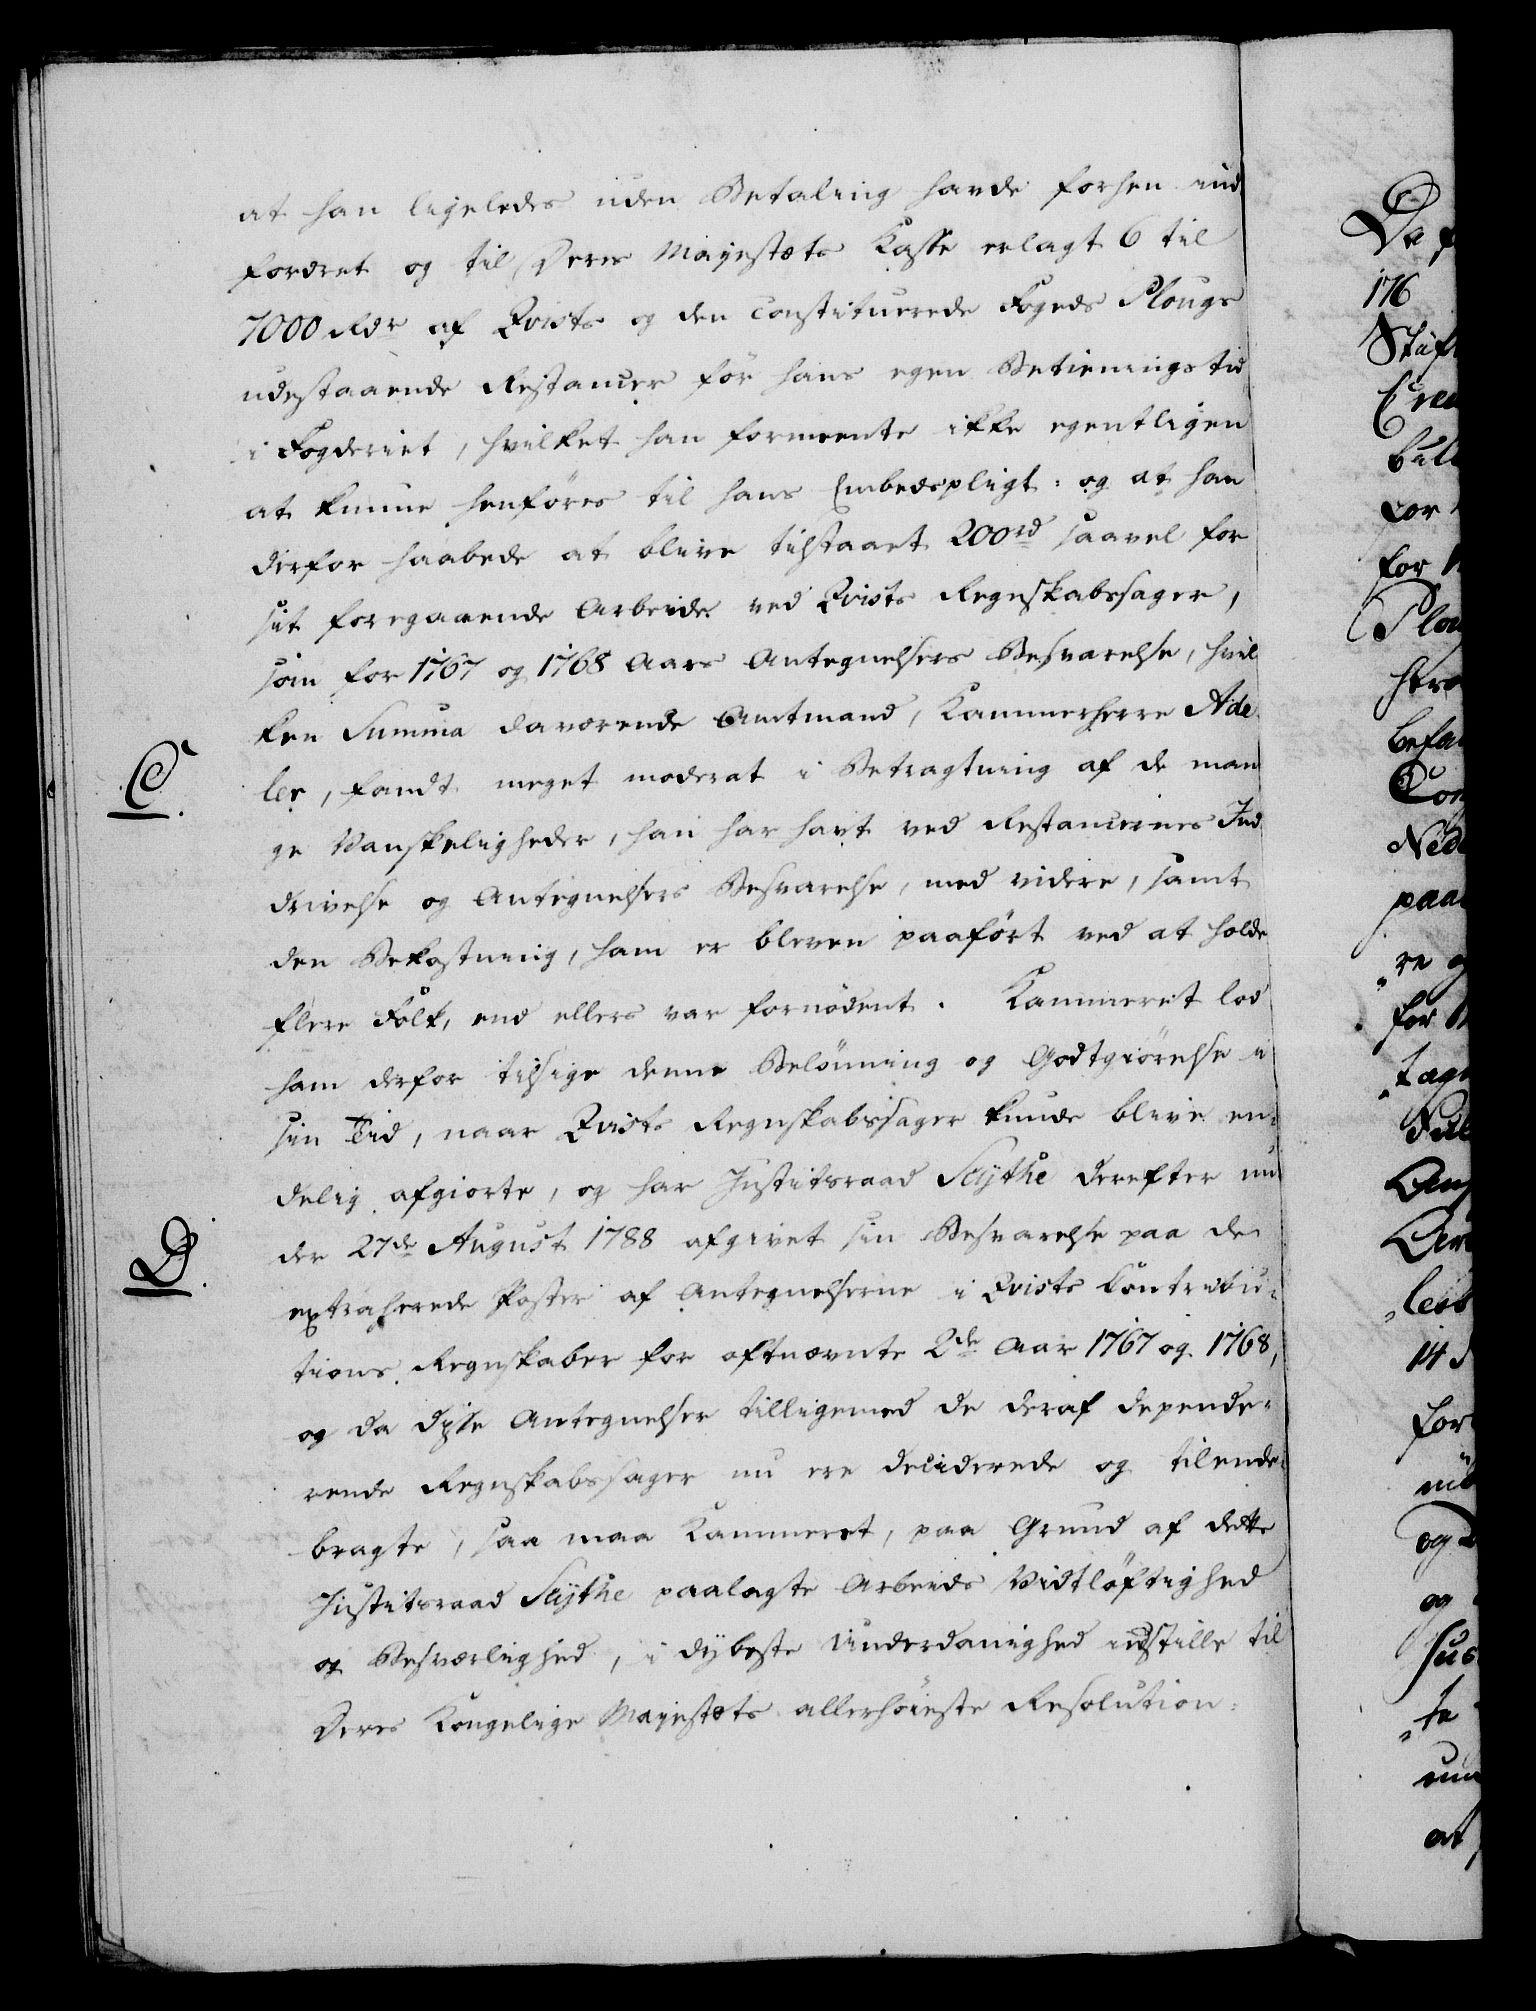 at han ligeledes uden Betaling havde forhen ind
fordret og til Deres Majestæts Kasse erlagt 6 til
7000 Rdr af Qvists og den constituerede Fogeds Plougs
udestaaende Restancer för hans egen Betienings tid
i Fogderiet, hvilket han formeente ikke egentligen
at kunne henföres til hans Embedspligt: og at han
derfor haabede at blive tilstaaet 200rd saavel for
sit foregaaende Arbeide ved Qvists Regnskabssager,
som for 1767 og 1768 Aars Antegnelsers Besvarelse, hvil
ken Summa daværende Amtmand, Kammerherre Ade
C.
ler, fandt meget moderat i Betragtning af de man
ge Vanskeligheder, han har havt ved Restancernes Ind
drivelse og Antegnelsers Besvarelse, med videre, samt
den Bekostning, ham er bleven paaført ved at holde
flere Folk, end ellers var fornödent. Kammeret lod
ham derfor tilsige denne Belönning og Godtgiörelse i
sin Tid, naar Qvists Regnskabssager kunde blive en=
delig afgiorte, og har Justitsraad Scÿthe derefter un
D.
der 27de August 1788 afgivet sin Besvarelse paa de
extraherede Poster af Antegnelserne i Qvists Contribu=
tions Regnskaber for oftnævnte 2de Aar 1767 og 1768,
og da disse Antegnelser tilligemed de deraf depende=
rende Regnskabssager nu ere deciderede og tilende=
bragte, saa maa Kammeret, paa Grund af dette
Justitsraad Scÿthe paalagte Arbeids Vidtlöftighed
og Besværlighed, i dybeste Underdanighed indstille til
Deres Kongelige Majestæts allerhöieste Resolution:
Da
176
for
paa
re
for
og
og
at